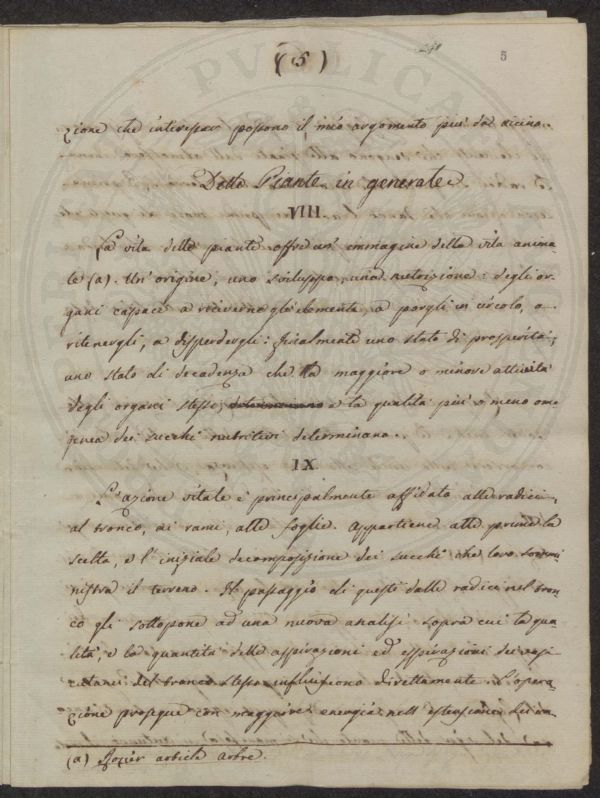 ( 5 )
5
zione che interessar possono il mio argomento piu' da vicino.
Delle Piante in generale
VIII
La vita delle piante offre un' immagine della vita anima-
le (a). Un' origine, uno sviluppo, una nutrizione: degli or-
gani capaci a riceverne gli elementi, a porgli in circolo, a
ritenergli, a disperdergli: finalmente uno stato di prosperità,
uno stato di decadenza che la maggiore o minore attività
degli organi stessi, e la qualità più o meno omo-
genea dei succhi nutritivi determinano.
IX
L'azione vitale e' principalmente affidata alle radici
al tronco, ai rami, alle foglie. Appartiene alle prime la
scelta, e l' iniziale decomposizione dei succhi che loro sommi
nistra il terreno. Il passaggio di questi dalle radici nel tron
co gli sottopone ad una nuova analisi sopra cui la qua-
lità, e la quantità delle aspirazioni ed' espirazioni dei vasi
cutanei del tronco stesso influiscono direttamente. L'opera-
zione prosegue con maggiore energia nell' estensione dei ra-
(a) Rozier article arbre.